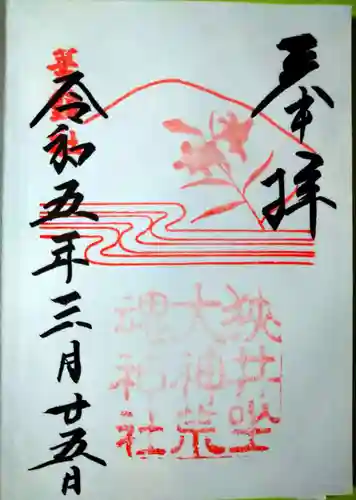 奉拝
狭井坐
大神荒
魂神社
令和五年三月廿五日